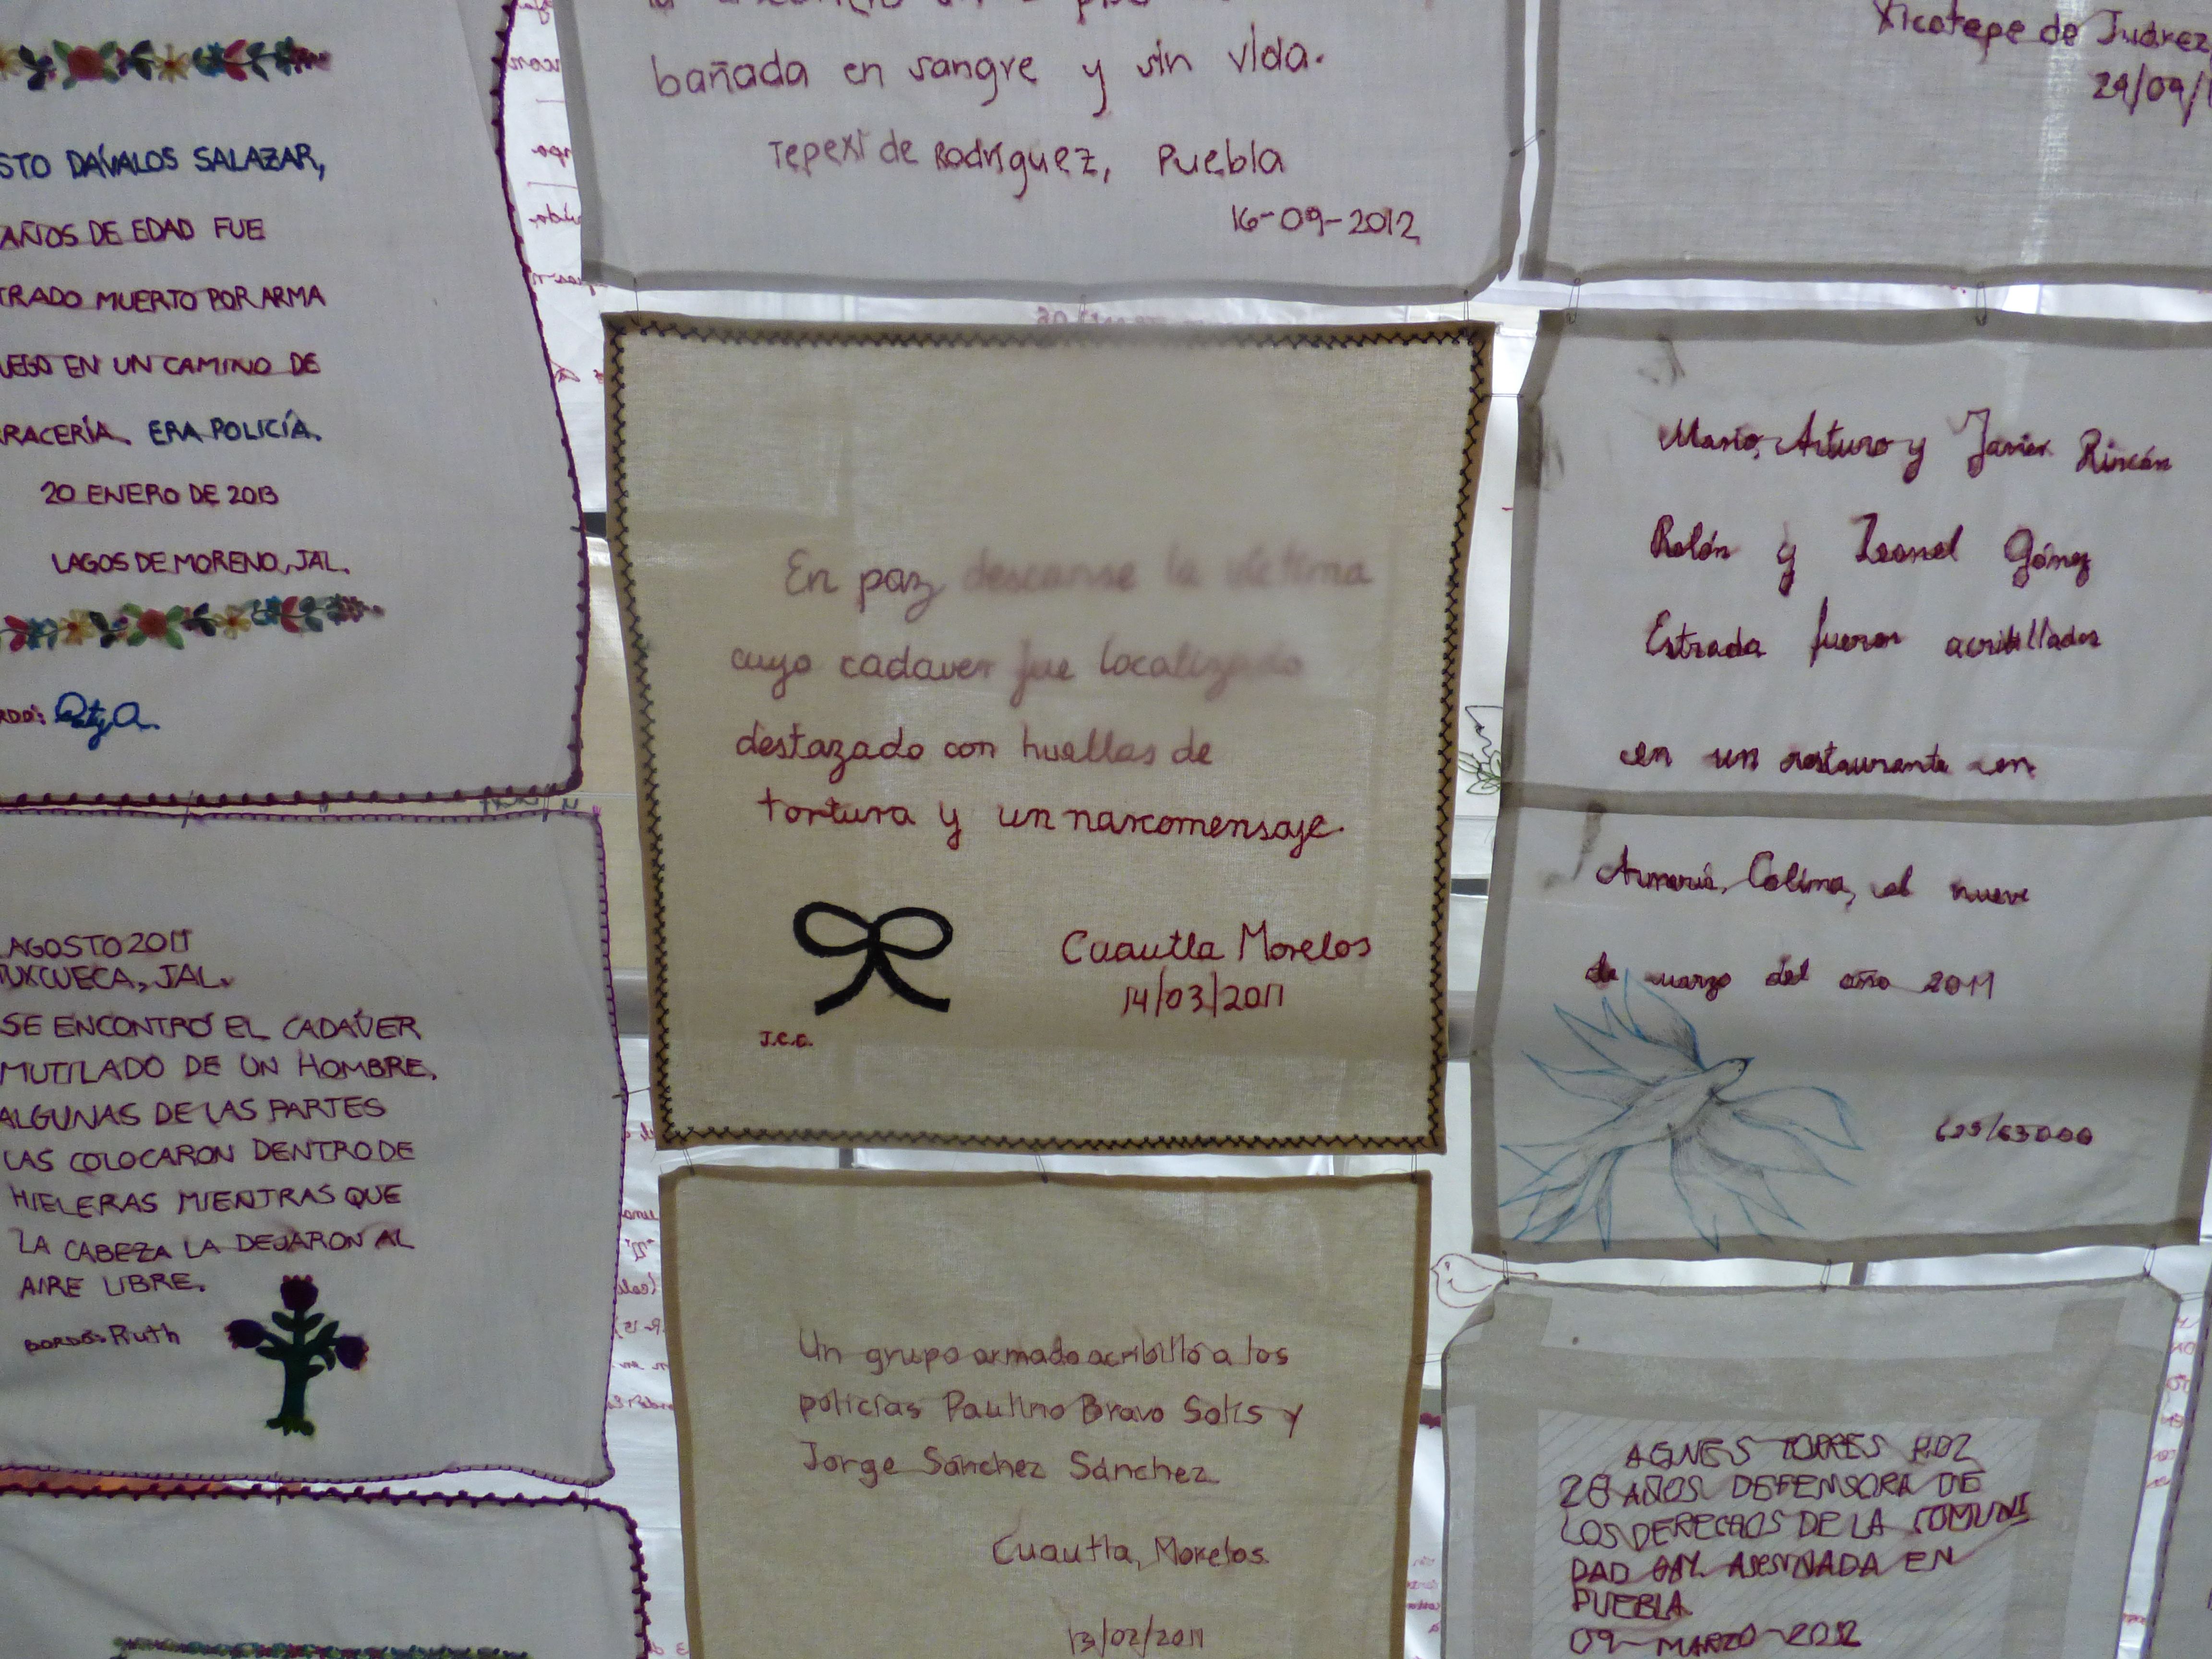 bañada en sangre y sin vida.
Tepexi de Rodríguez, Puebla
16-09-2012
Xicotepe de Juárez
STO DÁVALOS SALAZAR,
AÑOS DE EDAD FUE
TRADO MUERTO POR ARMA
UEGO EN UN CAMINO DE
RRACERÍA. ERA POLICÍA.
20 ENERO DE 2013
LAGOS DE MORENO, JAL.
En paz descanse la víctima
cuyo cadaver fue localizado
destazado con huellas de
tortura y un narcomensaje.
Cuautla Morelos
14/03/2011
J.C.C.
Mario, Arturo y Javier Rincón
Rolón y Leonel Gómez
Estrada fueron acribillados
en un restaurante en
Armería, Colima, el nueve
de marzo del año 2011
AGOSTO 2011
TUXCUECA, JAL.
SE ENCONTRÓ EL CADÁVER
MUTILADO DE UN HOMBRE.
ALGUNAS DE LAS PARTES
LAS COLOCARON DENTRO DE
HIELERAS MIENTRAS QUE
LA CABEZA LA DEJARON AL
AIRE LIBRE.
BORDÓ: Ruth
Un grupo armado acribilló a los
policías Paulino Bravo Solís y
Jorge Sánchez Sánchez.
Cuautla, Morelos.
13/02/2011
AGNES TORRES
28 AÑOS DEFENSORA DE
LOS DERECHOS DE LA COMUNI
DAD GAY ASESINADA EN
PUEBLA
09-MARZO-2012